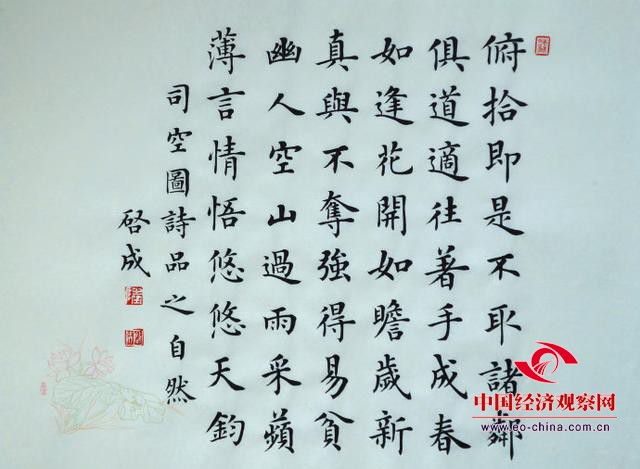 俯拾即是不取諸鄰
俱道適往著手成春
如逢花開如瞻歲新
真與不奪強得易貧
幽人空山過雨采蘋
薄言情悟悠悠天鈞
司空圖詩品之自然
啓成
中国经济观察网
www.eo-china.com.cn